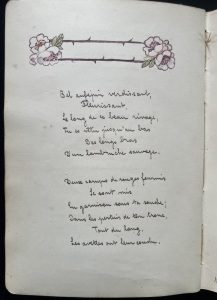 Bel aubépin verdissant,
Fleurissant,
Le long de ce beau rivage,
Tu es vêtu jusqu'au bas
Des longs bras
D'une lambruche sauvage.
Deux camps de rouges fourmis
Se sont mis
En garnison sous ta souche;
Dans les pertuis de ton tronc,
Tout du long,
Les avettes ont leur couche.